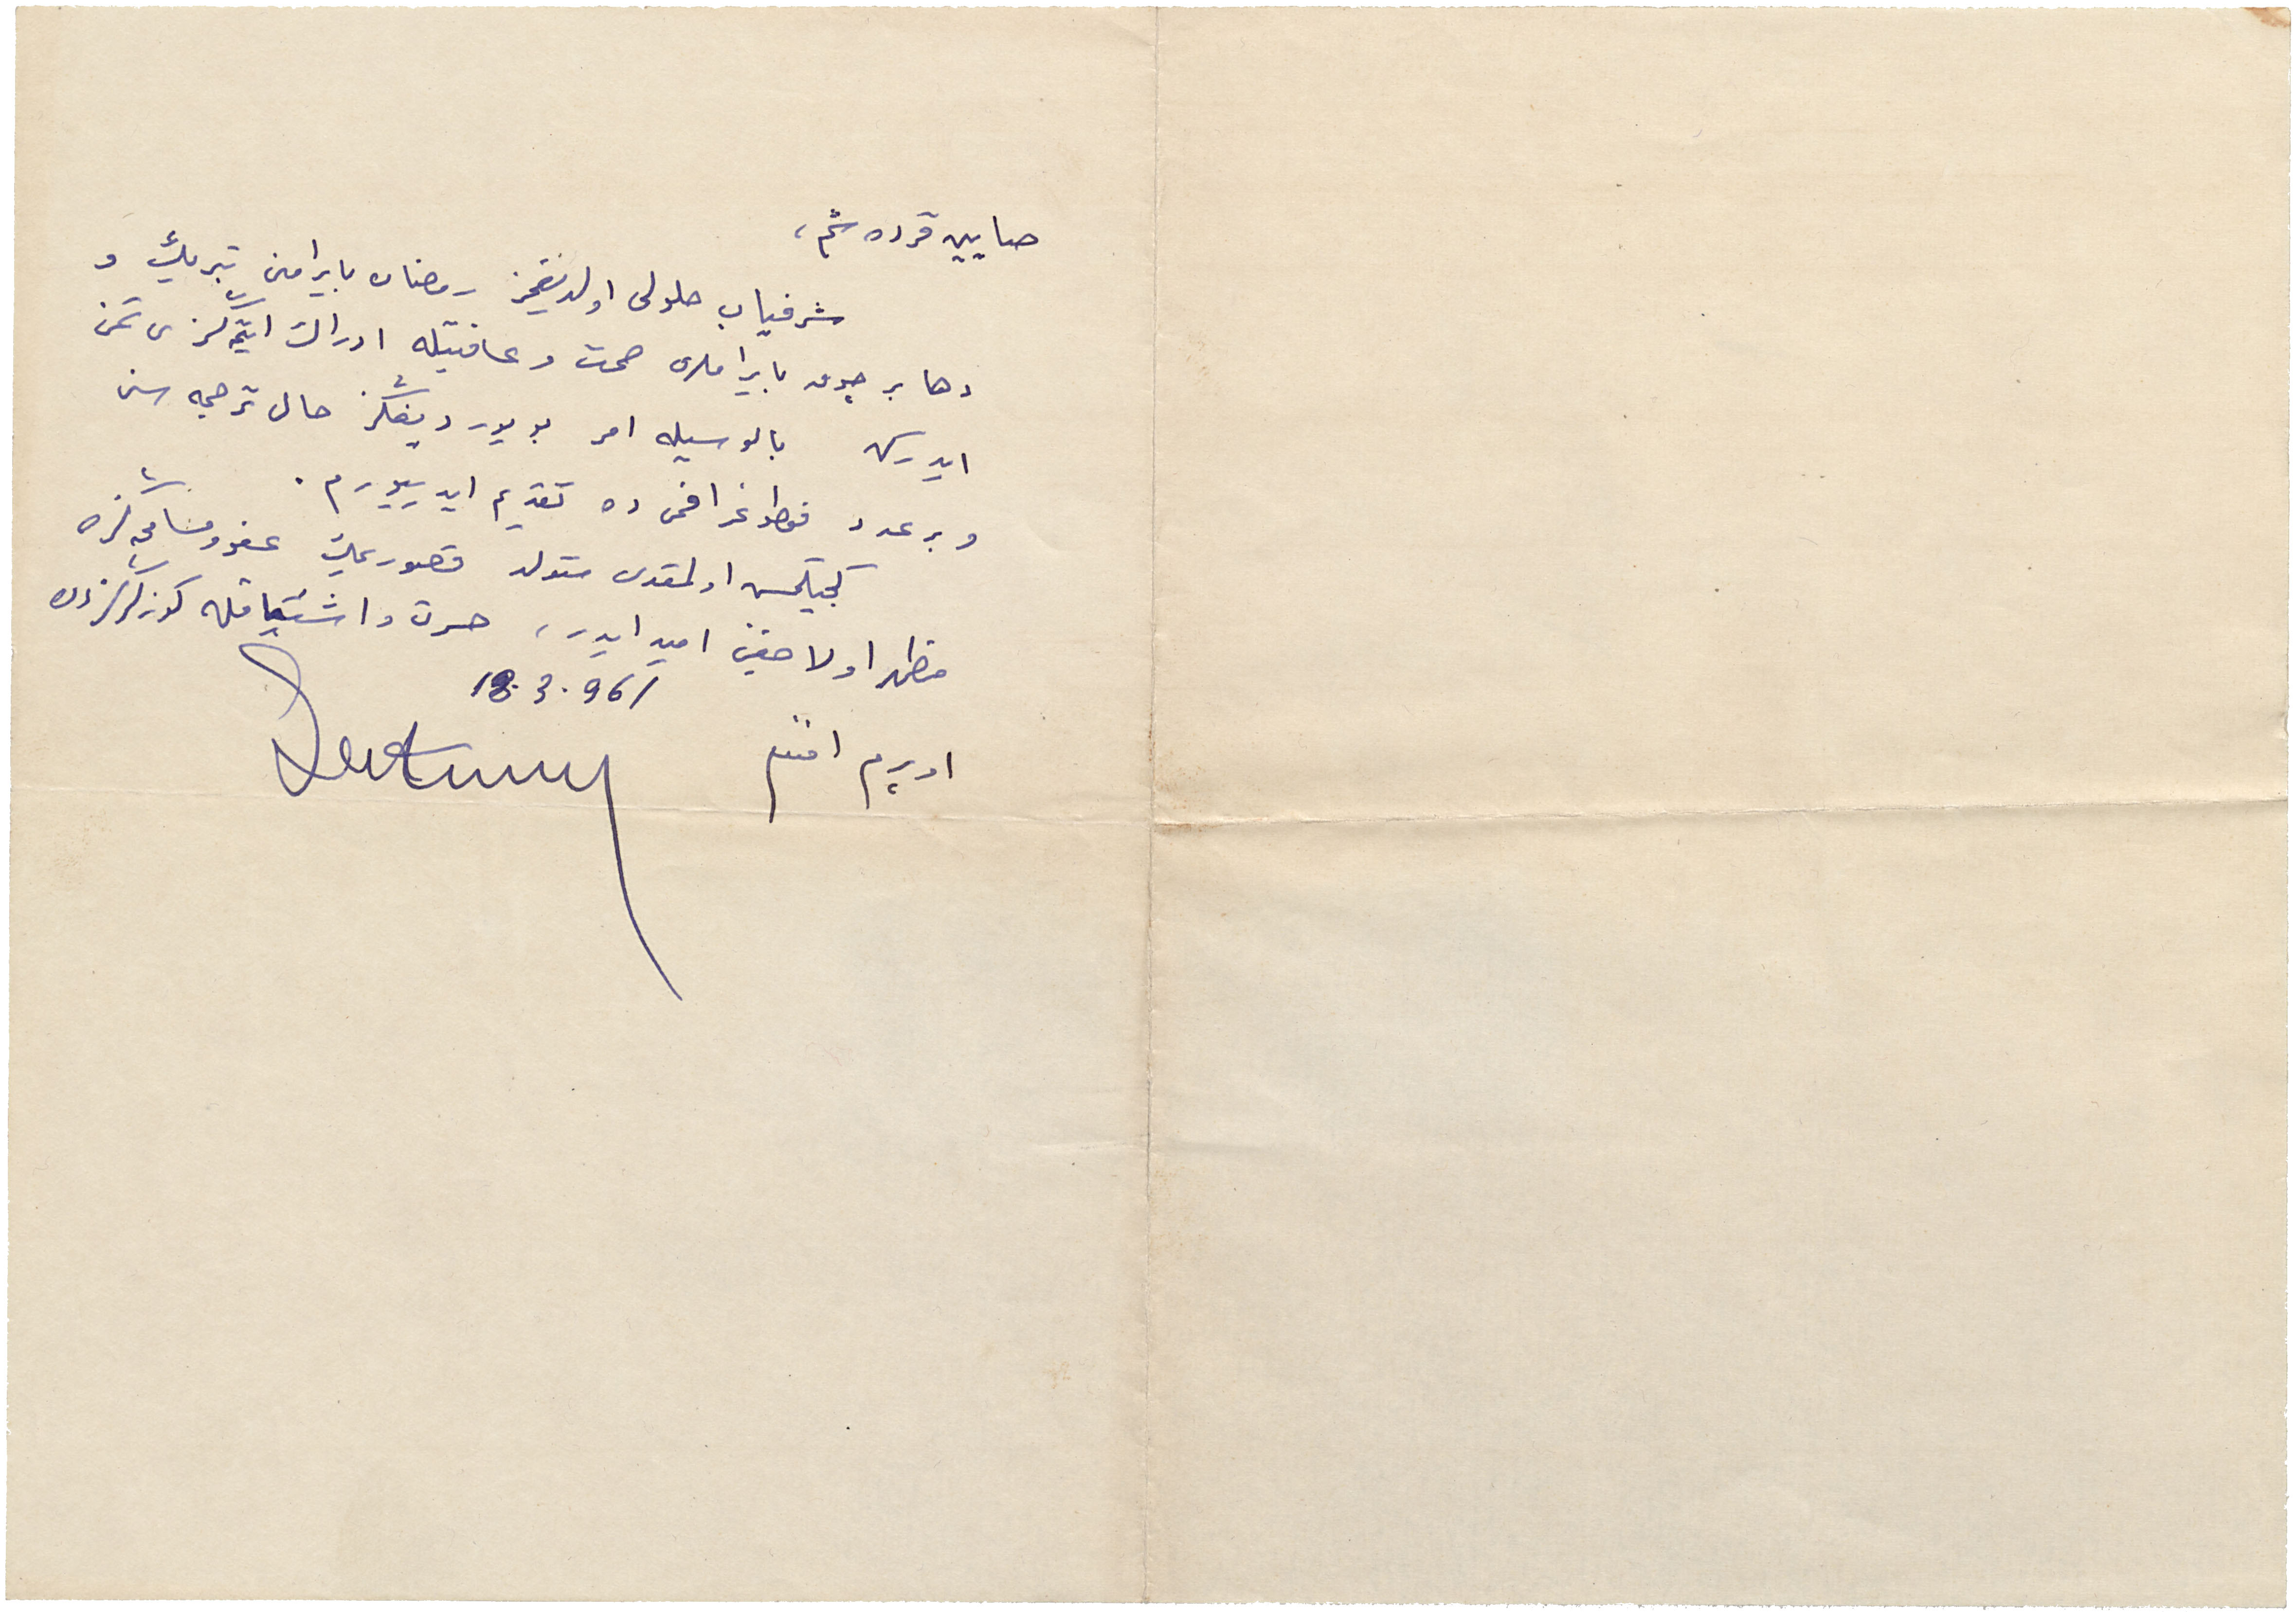 صایین قرده شم،
شرفیاب حلولی اولدیغمز رمضان بایرامنی تبریك و
دها بر چوق بایراملری صحت و عافیتله ادراك ایتمه‌كزی تمنی
ایدركن بالوسیله امر بویوردیغكز حال ترجمه سنی
و بر عدد فوطوغرافمی ده تقدیم ایدییورم.
كجیكمش اولمقدن متولد قصوریمك عفو و مسامحه كزه
مظهر اولاجغنی امید ایدر، حسرت و اشتیاقله كوزلریكزدن
18.3.961
اوپرم افندم